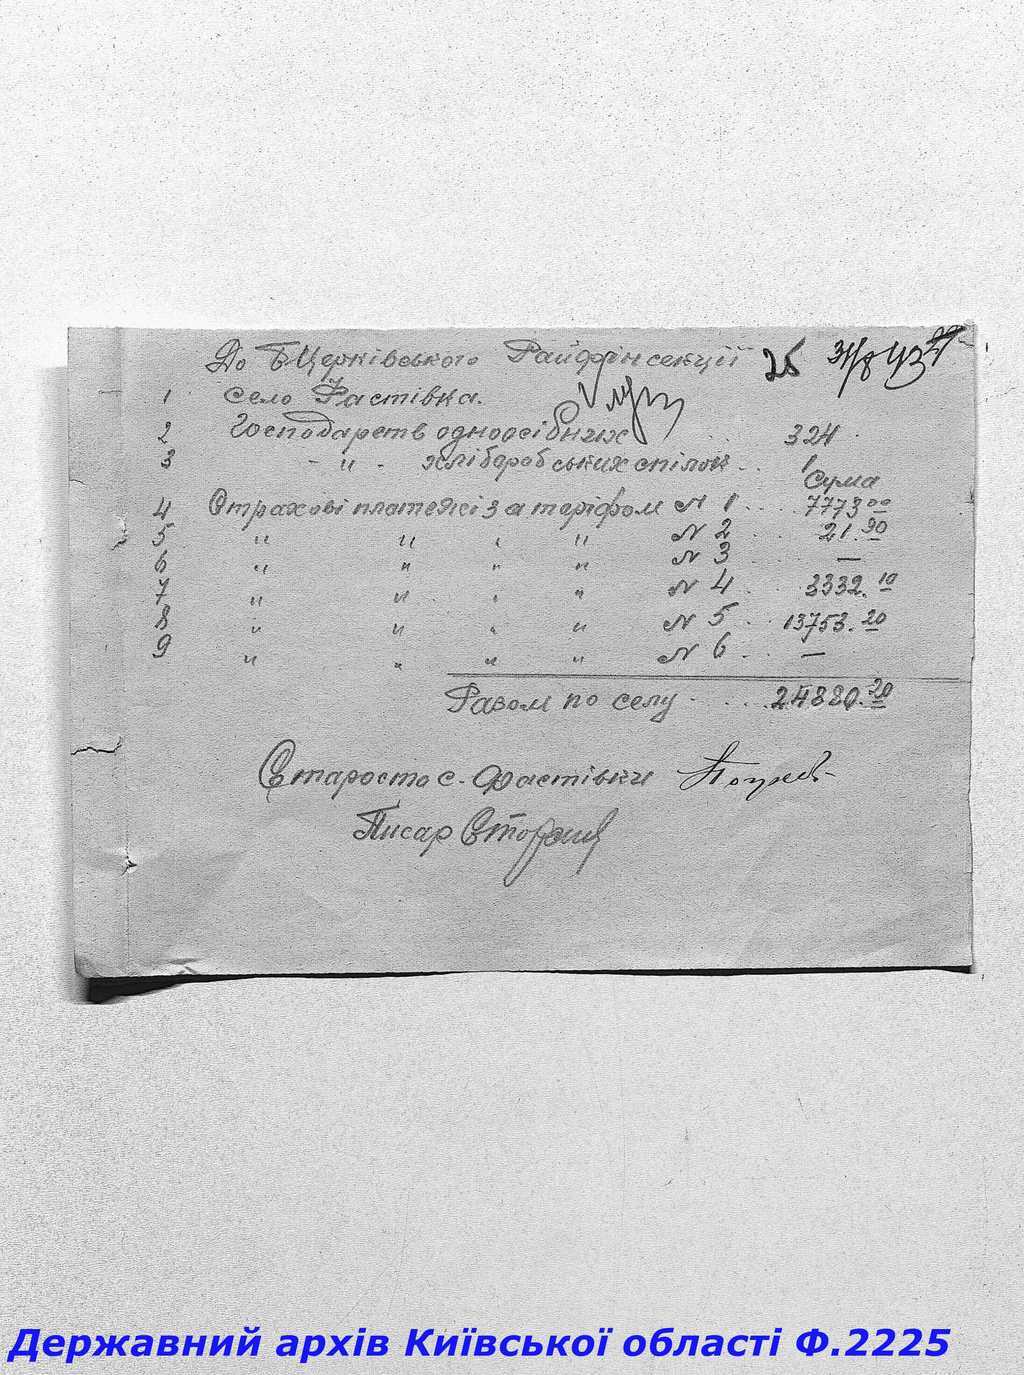 До Б Церківського Райффінсекції 25 31/8 43 27
1 село Фастівка.
2 Господарств одноосібних . . 324
3 - " - хліборобських спілок . . 1
Сума
4 Страхові платежі за таріфом N 1 . . . 7773 00
5 " " " " N 2 . . . 21.90
6 " " " " N 3 . . . —
7 " " " " N 4 . . . 3332.10
8 " " " " N 5 . . . 13753.20
9 " " " " N 6 . . . —
Разом по селу . . . . 24880.20
Староста с. Фастівки
Писар
Державний архів Київської області Ф.2225